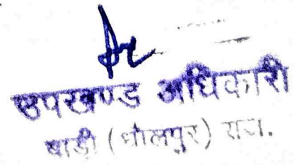 उपखण्ड अधिकारी
बाड़ी (धोलपुर) राज.